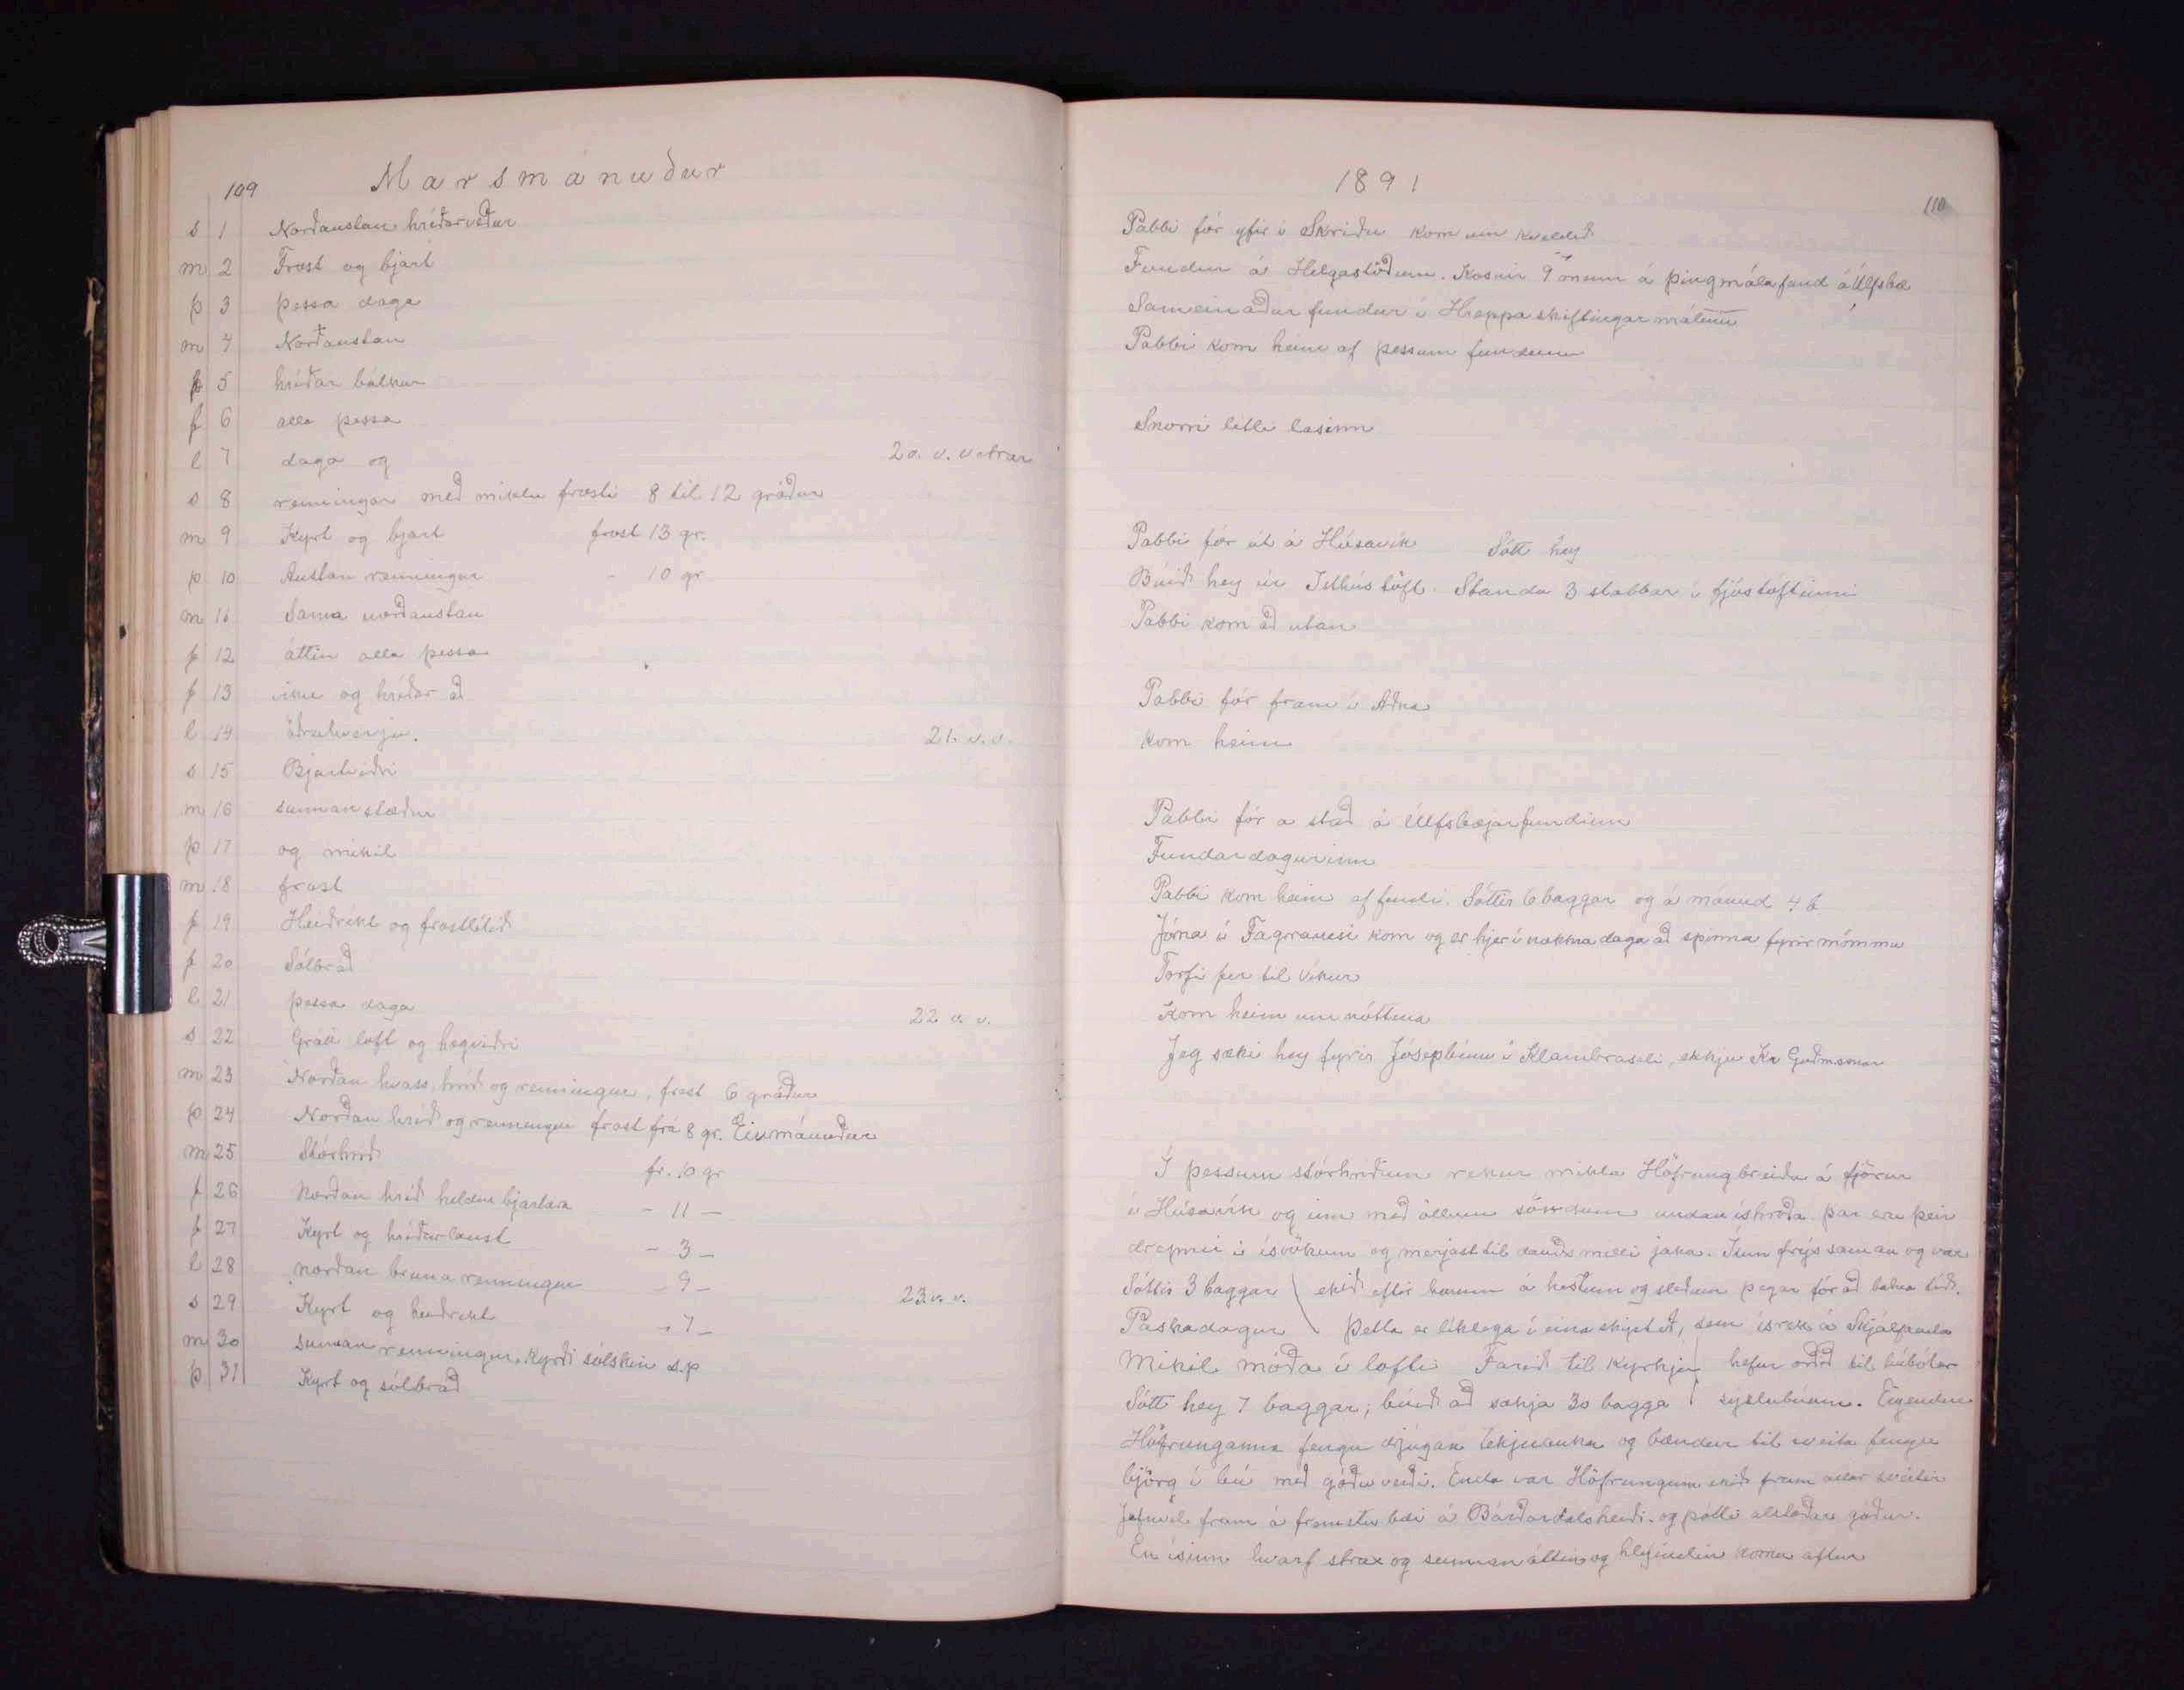 109 Marsmánuður
s 1 Norðaustan hríðarveður
m 2 Frost og bjart
þ 3 þessa daga
m 4 Norðaustan
f 5 hríðar bálkur
f 6 alla þessa
l 7 daga og 20. v. vetrar
s 8 renningar með miklu frosti 8 til 12 gráður
m 9 Kyrt og bjart frost 13 gr.
þ 10 Austan renningur - 10 gr
m 11 Sama norðaustan
f 12 áttin alla þessa
f 13 viku og hríðar að
l 14 öðruhverju. 21. v. v.
s 15 Bjartviðri
m 16 sunnan slæður
þ 17 og mikil
m 18 frost
f 19 Heiðríkt og frostlítið
f 20 Sólbráð
l 21 þessa daga 22 v. v.
s 22 Gráu loft og hægviðri
m 23 Norðan hvass, hríð og renningur, frost 6 gráður
þ 24 Norðan hríð og renningur frost frá 8 gr. Einmánuður
m 25 Stórhríð fr. 10 gr
f 26 Norðan hríð heldur bjartara - 11 -
f 27 Kyrt og hríðarlaust - 3 -
l 28 norðan bruna renningur - 9 -
s 29 Kyrt og heiðríkt - 7 - 23. v. v.
m 30 sunnan renningur. Kyrði sólskin s.p
þ 31 Kyrt og sólbráð
1891
110
Pabbi fór yfir í Skriðu kom um kveldið
Fundur á Helgastöðum. Kosnir 9 menn á þingmálafund á Úlfsbæ
Sameinaður fundur í Hreppaskiftingar málinu
Pabbi kom heim af þessum fundum
Snorri litli lasinn
Pabbi fór út á Húsavík Sótt hey
Búið hey úr Tóft. Standa 3 stabbar í fjóstóftinni
Pabbi kom að utan
Pabbi fór fram í
kom heim
Pabbi fór a stað á Úlfsbæjarfundinn
Fundardagurinn
Pabbi kom heim af fundi. Sóttir 6 baggar og á mánud 4 b
Jóna í Fagranesi kom og er hjer í nokkra daga að spinna fyrir mömmu
Torfi fer til Víkur
Kom heim um nóttina
Jeg sæki hey fyrir Jósepbínu í Klambraseli, ekkju Kr Guðmssonar
Í þessum stórhríðum rekur mikla Höfrungbreiðu á fjörur
í Húsavík og inn með öllum söndum undan íshroða. þar eru þeir
drepnir í ísvökum og merjast til dauðs milli jaka. Ísinn frýs saman og var
Sóttir 3 baggar ekið eftir honum á hestum og sleðum þegar fór að batna tíð.
Páskadagur Þetta er líklega í eina skiptið, sem ísrek á Skjálfanda
Mikil móða í lofti Farið til Kyrkju hefur orðið til búbótar
Sótt hey 7 baggar; búið að sækja 30 bagga sýslubúum. Eigendur
Höfrunganna fengu drjúgan tekjuauka og bændur til sveita fengu
björg í bú með góðu verði. Enda var Höfrungum ekið fram allar sveitir
Jafnvel fram á fremstu bæi á Bárðardalsheiði og þótti alstaðar góður.
En ísinn hvarf strax og sunnan áttin og hlýindin komu aftur